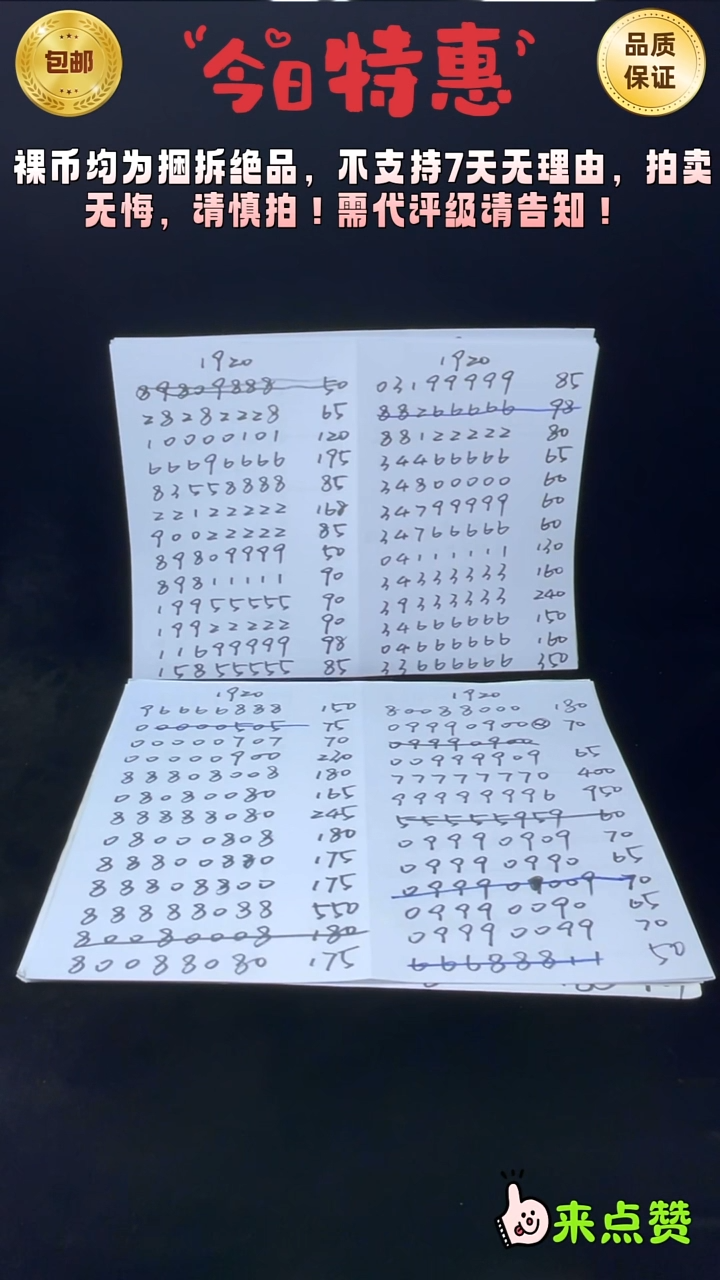 包邮
今日特惠
品质
保证
裸币均为捆拆绝品，不支持7天无理由，拍卖
无悔，请慎拍！需代评级请告知！
1920
89809888 50
28282228 65
10000101 120
66696666 195
83558888 85
22122222 168
90022222 85
89809999 50
89811111 90
19955555 90
19922222 90
11699999 98
15855555 85
1920
03199999 85
88266666 98
88122222 80
34466666 65
34800000 60
34799999 60
34766666 60
04111111 130
34333333 160
39333333 240
34666666 150
04666666 160
33666666 350
1920
96666888 150
00000505 75
00000707 70
00000900 230
88808008 180
08080080 165
88888080 245
08000808 180
88800880 175
88808800 175
88888088 550
80080008 180
80088080 175
1920
80088000 180
09990900 70
09990900
00999909 65
77777770 400
99999996 950
55555959 60
09990909 70
09990990 65
09990009 70
09990090 65
09990099 70
66688811 50
来点赞